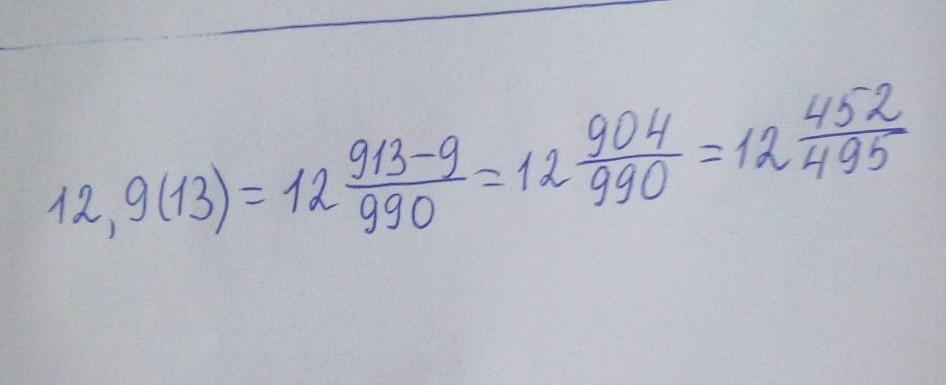 12,9(13) = 12 913-9/990 = 12 904/990 = 12 452/495